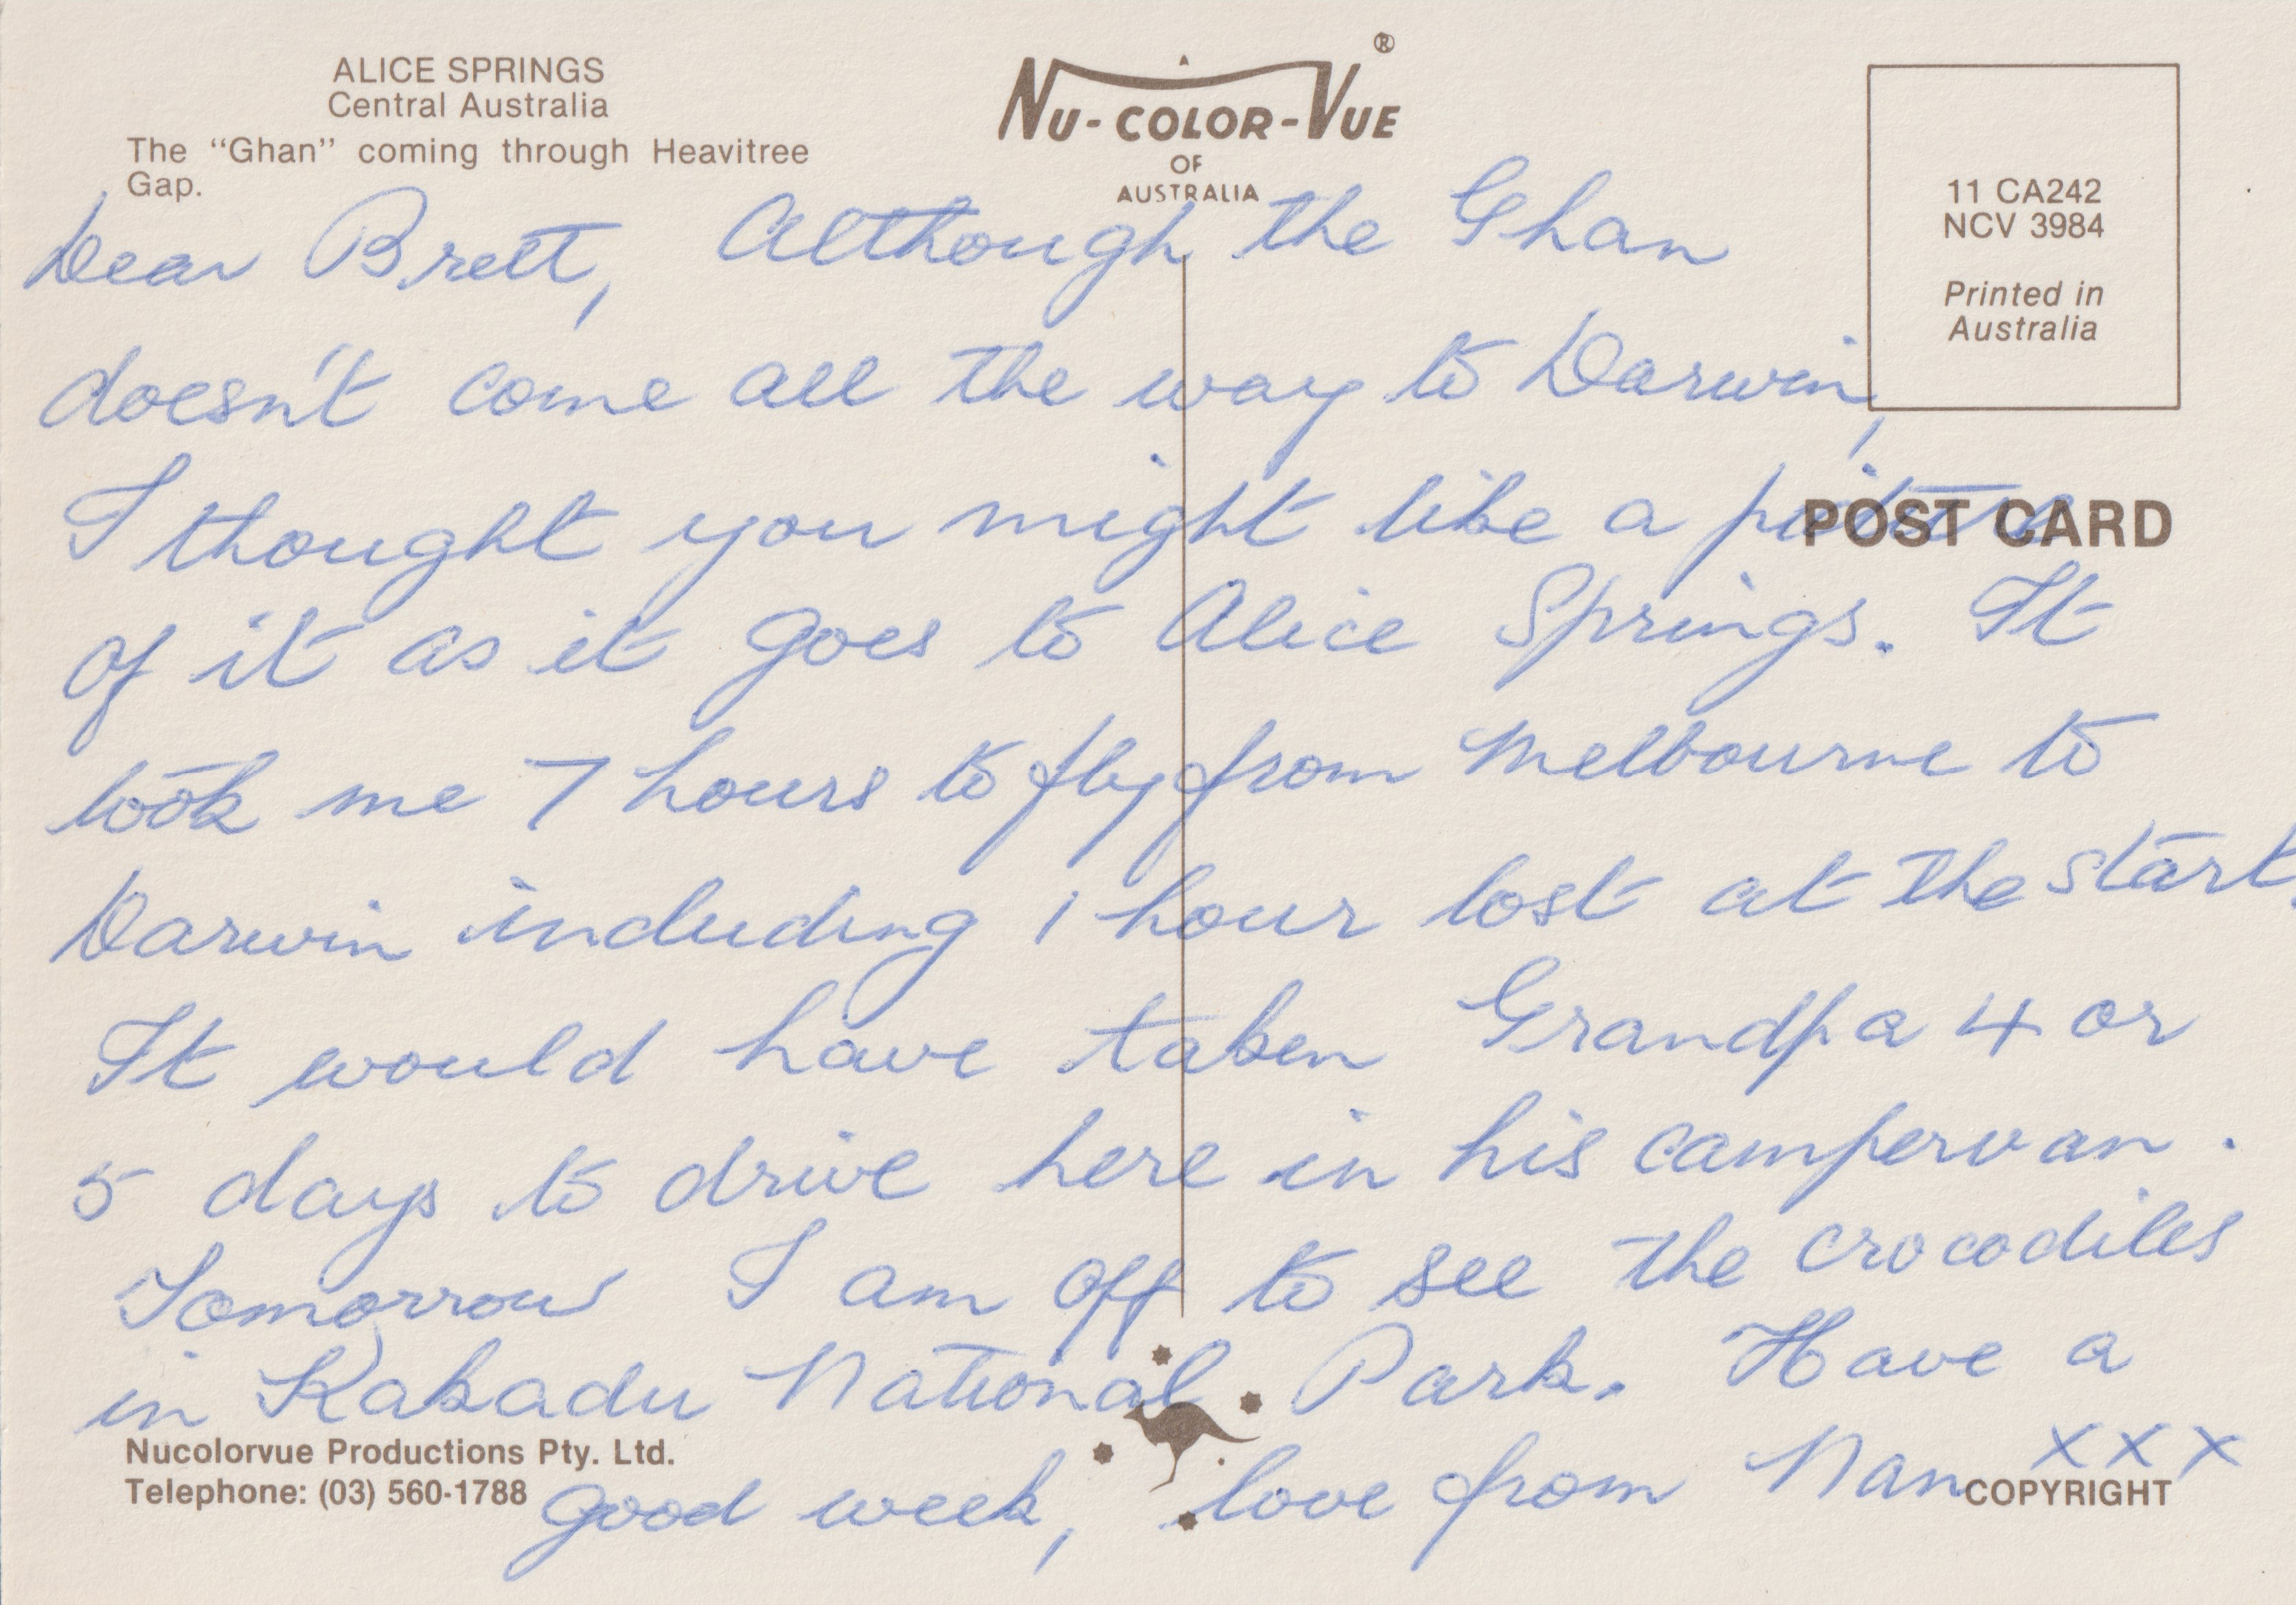 ALICE SPRINGS
Central Australia
The "Ghan" coming through Heavitree
Gap.
NU-COLOR-VUE®
OF
AUSTRALIA
11 CA242
NCV 3984
Printed in
Australia
POST CARD
Dear Brett, Although the Ghan
doesn't come all the way to Darwin,
I thought you might like a picture
of it as it goes to Alice Springs. It
took me 7 hours to fly from Melbourne to
Darwin including 1 hour lost at the start.
It would have taken Grandpa 4 or
5 days to drive here in his campervan.
Tomorrow I am off to see the crocodiles
in Kakadu National Park. Have a
good week, love from Nan xxx
Nucolorvue Productions Pty. Ltd.
Telephone: (03) 560-1788
COPYRIGHT